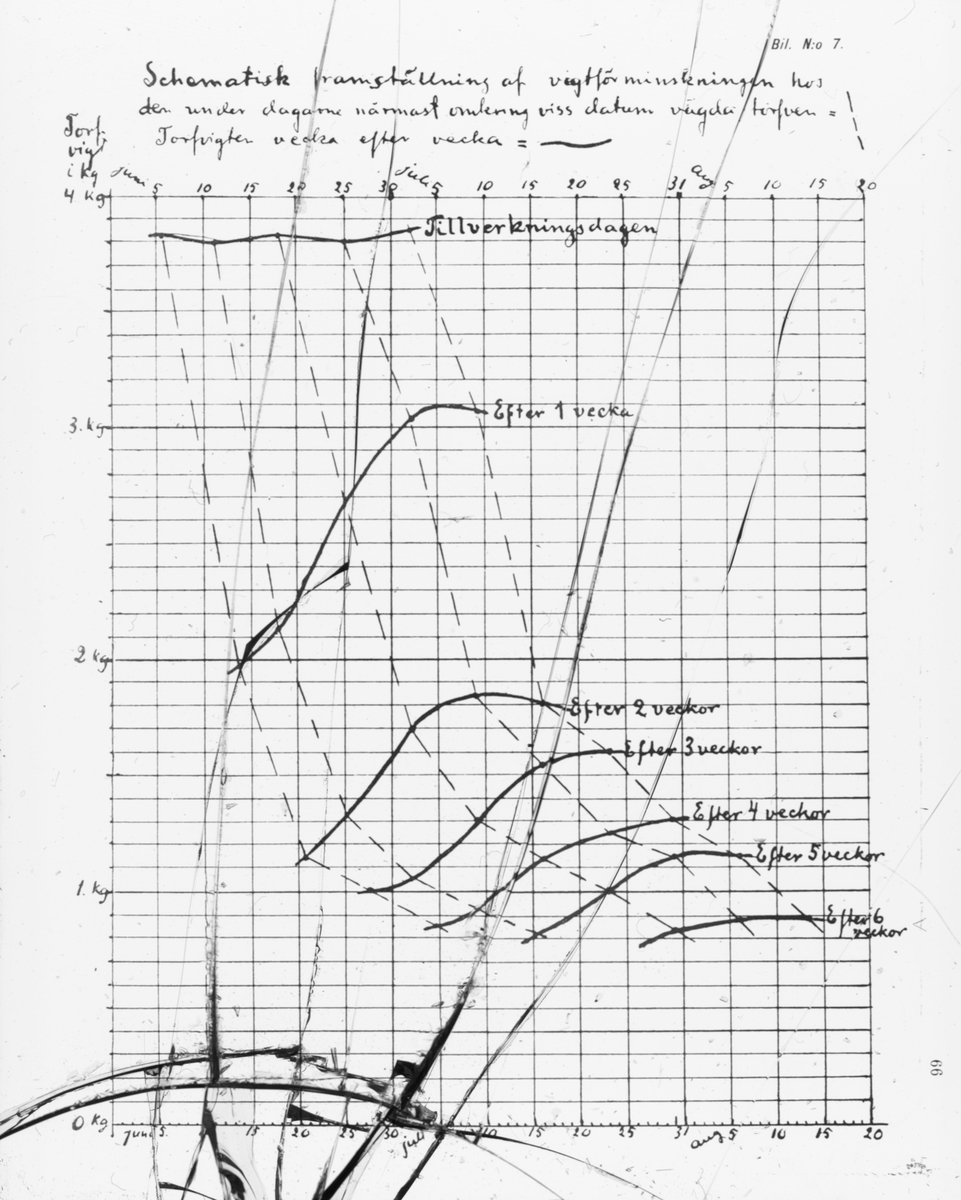 Bil. N:o 7.
Schematisk framställning af vigtförminskningen hos
den under dagarne närmast omkring viss datum vägda torfven =
Torfvigten vecka efter vecka =
Torf-
vigt
i kg
Juni 5 10 15 20 25 30 Juli 5 10 15 20 25 31 Aug 5 10 15 20
4 kg
Tillverkningsdagen
Efter 1 vecka
3. kg
2 kg
Efter 2 veckor
Efter 3 veckor
Efter 4 veckor
Efter 5 veckor
1. kg
Efter 6
veckor
66
0 kg
Juni 5 15 20 25 Juli 10 15 20 25 31 Aug 5 10 15 20